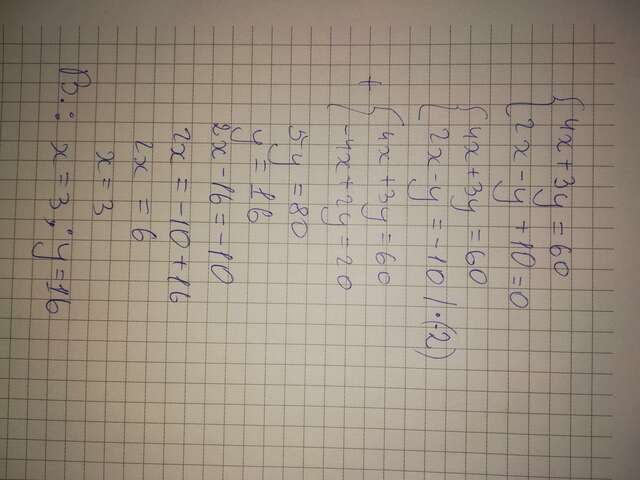 {4x+3y=60
{2x-y+10=0
{4x+3y=60
{2x-y=-10 |·(-2)
+ {4x+3y=60
{-4x+2y=20
5y=80
y=16
2x-16=-10
2x=-10+16
2x=6
x=3
В.: x=3; y=16